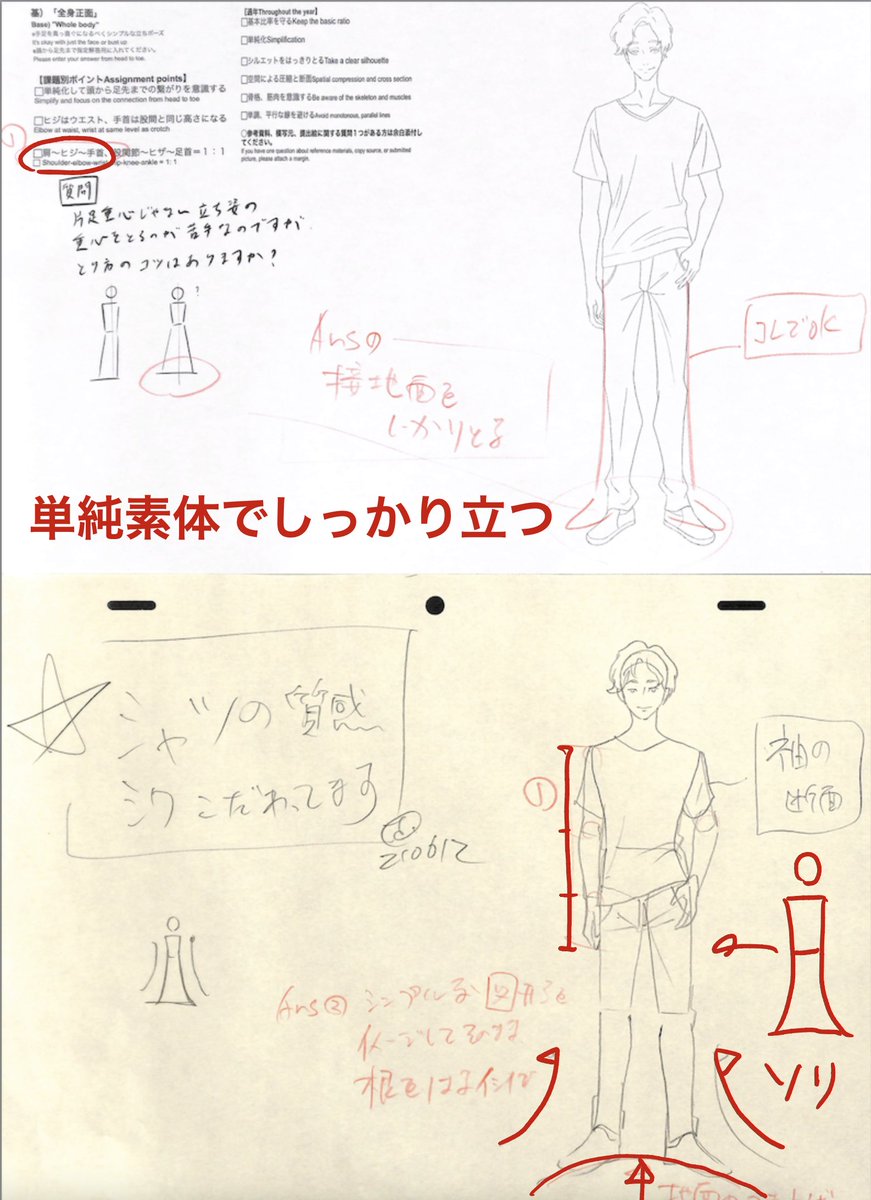 基)「全身正面」
Base) "Whole body"
It's okay with just the face or bust up
Please enter your answer from head to toe.
【課題別ポイントAssignment points】
□単純化して頭から足先までの繋がりを意識する
Simplify and focus on the connection from head to toe
□ヒジはウエスト、手首は股間と同じ高さになる
Elbow at waist, wrist at same level as crotch
□肩〜ヒジ〜手首、股関節〜ヒザ〜足首＝1：1
□Shoulder-elbow-wrist, hip-knee-ankle = 1: 1
【通年Throughout the year】
□基本比率を守るKeep the basic ratio
□単純化Simplification
□シルエットをはっきりとるTake a clear silhouette
□空間による圧縮と断面Spatial compression and cross section
□骨格、筋肉を意識するBe aware of the skeleton and muscles
□単調、平行な線を避けるAvoid monotonous, parallel lines
○参考資料、模写元、提出絵に関する質問１つがある方は余白添付してください。
If you have one question about reference materials, copy source, or submitted
picture, please attach a margin.
①
質問
片足重心じゃない立ち姿の
重心をとるのが苦手なのですが
とり方のコツはありますか？
?
Ansの
接地面を
しっかりとる
コレでOK
単純素体でしっかり立つ
シャツの質感
シワこだわってます
210612
①
袖の
断面
Ans② シンプルな図形を
イメージしてみる
根をはるイメージで
ソリ